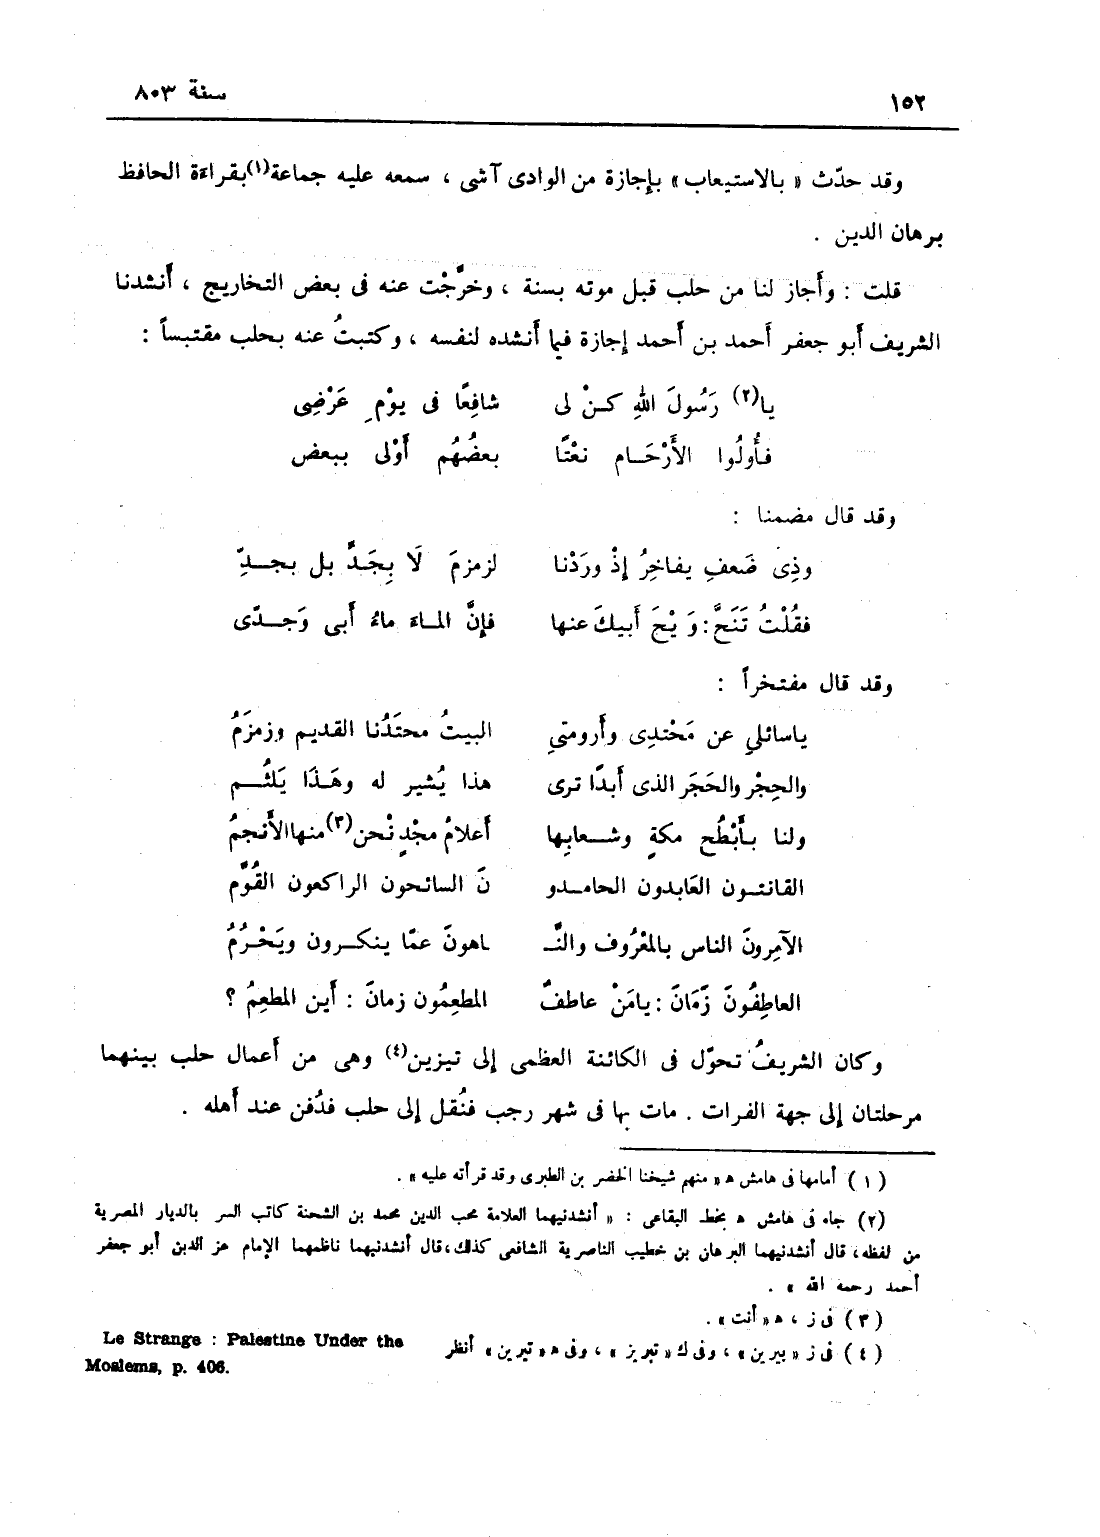 ١٥٢ سنة ٨٠٣
وقد حدّث « بالاستيعاب » بإجازة من الوادى آشى ، سمعه عليه جماعة(١)بقراءة الحافظ
برهان الدين .
قلت : وأَجاز لنا من حلب قبل موته بسنة ، وخرَّجْت عنه فى بعض التخاريج ، أَنشدنا
الشريف أَبو جعفر أَحمد بن أَحمد إِجازة فيما أَنشده لنفسه ، وكتبتُ عنه بحلب مقتبساً :
يا(٢) رَسُولَ اللهِ كـنْ لى شافِعًا فى يوْمِ عَرْضِى
فـأُولُوا الأَرْحَـام نعْتًا بعضُهُم أَوْلى ببعض
وقد قال مضمنا :
وذِى ضَعفٍ يفاخِرُ إِذْ ورَدْنا لزمزمَ لَا بِجَدٍّ بل بجـدِّ
فقُلْتُ تَنَحَّ: وَيْحَ أَبيكَ عنها فإِنَّ المـاءَ ماءُ أَبى وَجَـدّى
وقد قال مفتخراً :
ياسائلي عن مَحْتِدِى وأَرومتيِ البيتُ محتَدُنا القديم وزمزَمُ
والحِجْر والحَجَر الذى أَبدًا ترى هذا يُشير له وهَـذَا يَلثُـم
ولنا بـأَبْطُح مكةٍ وشـعابِها أَعلامُ مجْدٍ نْحن(٣)منهاالأَنجمُ
القانتـون العَابدون الحامـدو نَ السائحون الراكعون القُوَّم
الآمِرونَ الناس بالمعْرُوف والنَّـ ـاهونَ عمّا ينكـرون ويَحْرُمُ
العاطِفُونَ زَمَانَ : يامَنْ عاطفٌ المطعِمُون زمانَ : أَين المطعِمُ ؟
وكان الشريفُ تحوّل فى الكائنة العظمى إلى تيزين(٤) وهى من أَعمال حلب بينهما
مرحلتان إِلى جهة الفرات . مات بها فى شهر رجب فنُقل إِلى حلب فدُفن عند أَهله .
( ١ ) أمامها فى هامش ه « منهم شيخنا الخضر بن الطبرى وقد قرأته عليه » .
(٢) جاء فى هامش ه بخط البقاعى : « أنشدنيهما العلامة محب الدين محمد بن الشحنة كاتب السر بالديار المصرية
من لفظه، قال أنشدنيهما البرهان بن خطيب الناصرية الشافعى كذلك، قال أنشدنيهما ناظمهما الإمام عز الدين أبو جعفر
أحمد رحمه الله » .
( ٣ ) فى ز ، ه « أنت » .
( ٤ ) فى ز « بيرين » ، وفى ك « تبريز » ، وفى ه « تيرين » أنظر Le Strange : Palestine Under the
Moslems, p. 406.